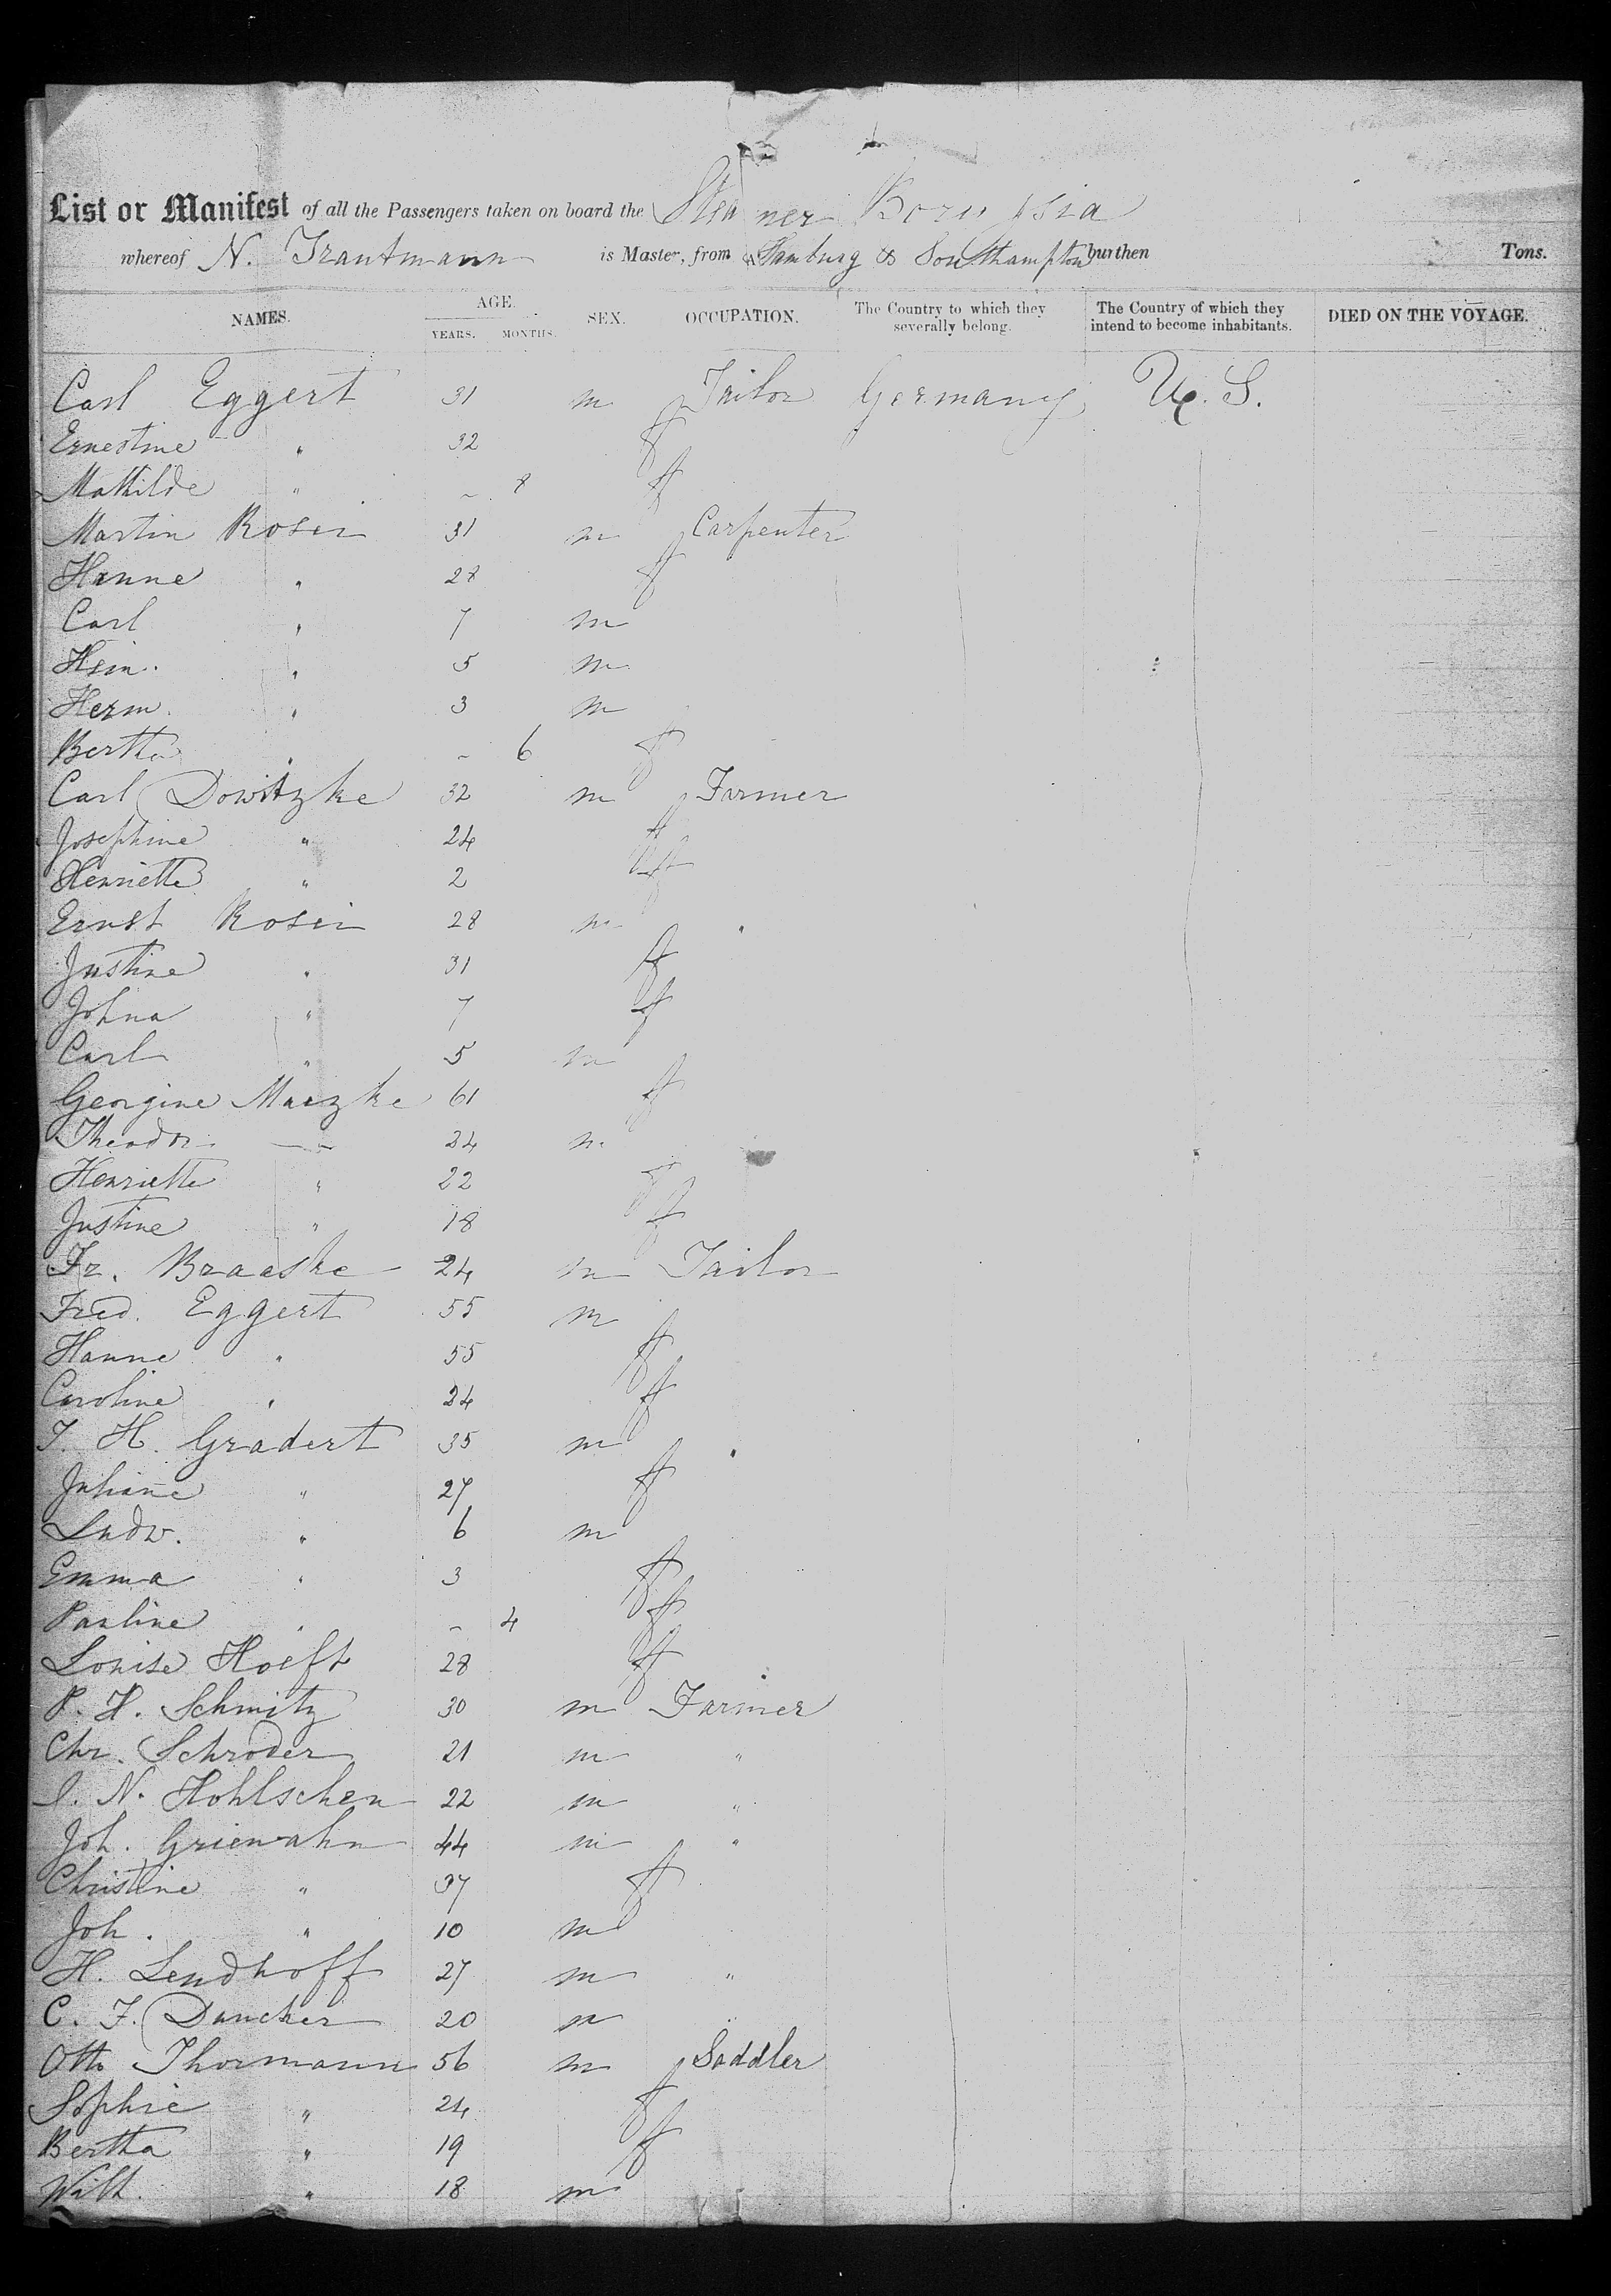 List or Manifest of all the Passengers taken on board the Steamer Borussia
whereof N. Trautmann is Master, from Hamburg & Southampton burthen Tons.
NAMES. AGE. YEARS. MONTHS. SEX. OCCUPATION. The Country to which they severally belong. The Country of which they intend to become inhabitants. DIED ON THE VOYAGE.
Carl Eggert 31 m Tailor Germany U. S.
Ernestine " 32 f
Mathilde " - 8 f
Martin Rosin 31 m Carpenter
Hanne " 28 f
Carl " 7 m
Hein. " 5 m
Herm. " 3 m
Bertha " - 6 f
Carl Dowitzke 32 m Farmer
Josephine " 24 f
Henriette " 2 f
Ernst Rosin 28 m "
Justine " 31 f
Johna " 7 f
Carl " 5 m
Georgine Maizke 61 f
Theodor — 24 m
Henriette " 22 f
Justine " 18 f
Fr. Braeske 24 m Tailor
Fred. Eggert 55 m
Hanne " 55 f
Caroline " 24 f
J. H. Gradert 35 m "
Juliane " 27 f
Ludw. " 6 m
Emma " 3 f
Pauline " - 4 f
Louise Hoeft 28 f
P. H. Schmitz 30 m Farmer
Chr. Schroder 21 m "
I. N. Hohlschen 22 m "
Joh. Grienwahn 44 m "
Christine " 37 f
Joh. " 10 m
H. Lendhoff 27 m "
C. F. Duncker 20 m "
Otto Thormann 56 m Saddler
Sophie " 24 f
Bertha " 19 f
Wilh. " 18 m